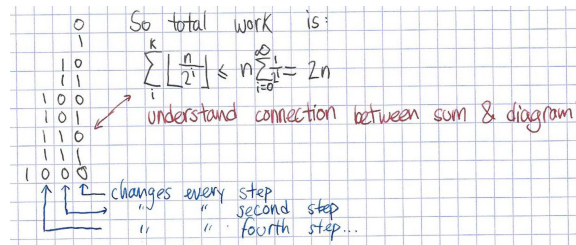 0
1
10
11
100
101
110
111
1000
So total work is:
k
∑ ⌊n/2^i⌋ ≤ n ∑ 1/2^i = 2n
i
∞
i=0
understand connection between sum & diagram
changes every step
" " second step
" " fourth step...